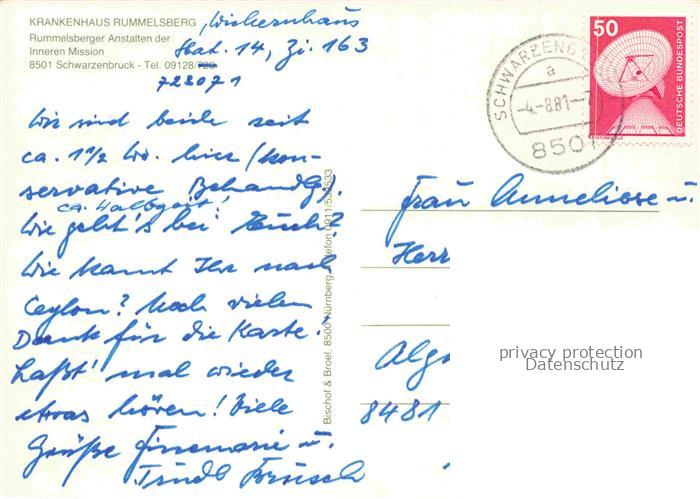 KRANKENHAUS RUMMELSBERG, Wichernhaus
Rummelsberger Anstalten der
Inneren Mission
Stat. 14, Zi. 163
8501 Schwarzenbruck - Tel. 09128/720
723071
Wir sind beide seit
ca. 1 1/2 Wo. hier (kon-
servative Behandlg).
ca. Halbzeit!
Wie geht's bei Euch?
Wie kamt Ihr nach
Ceylon? Noch vielen
Dank für die Karte!
Laßt' mal wieder
etwas hören! Viele
Grüße Annemarie u.
Trudl
Bischof & Broel, 8500 Nürnberg, Telefon 0911/
SCHWARZENB
a
-4.-8.81-
8501
50
DEUTSCHE BUNDESPOST
Frau Anneliese u.
Herr
8481
privacy protection
Datenschutz